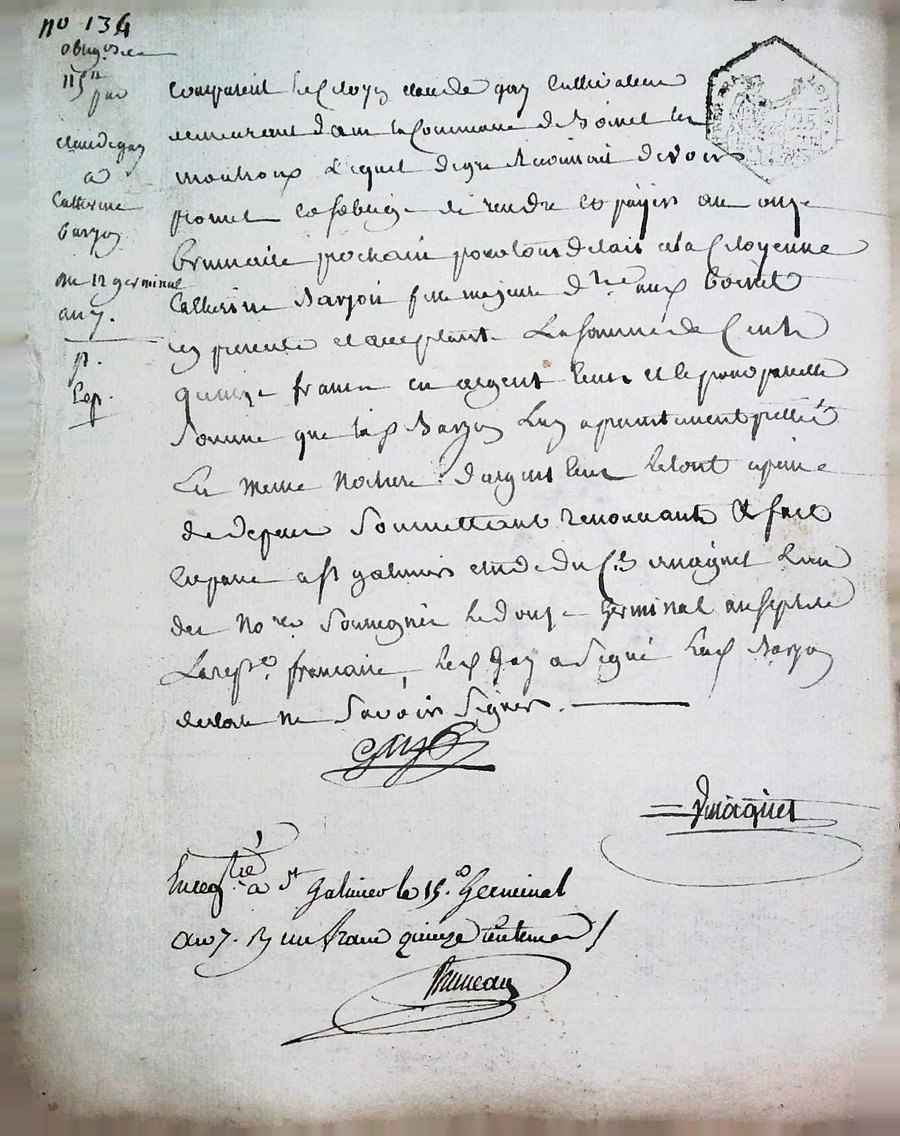 no 134
obligon de
115 ᶠ
par
claude gay
a
Catherine
barjon
du 12 germinal
an 7.
Exp.
comparait le Citoyen claude gay Cultivateur
demeurant dans la Commune de Boisset les
montrond Lequel de gré Reconnait devoir
promet et soblige de rendre et payer au onze
brumaire prochain pour tout delais a la Citoyenne
Catherine Barjon fille majeure dte aux Boisset
icy presente et acceptante La somme de Cents
quinze francs en argent pour et le pour pareille
Somme que la de Barjon Luy a presentement pretté
En meme nature d'argent Le tout a peine
de depens Soumettant renonçant &c fait
Et passé a St galmier etude du Cen maquet L'un
des nores Soussignés Le douze Germinal an sept de
La repe francaise, Led gay a Signé Lad Barjon
declare ne Savoir Signer.
gay
Maquet
Enregistré à St Galmier le 15. Germinal
an 7. R un franc quinze centimes /
Bruneau